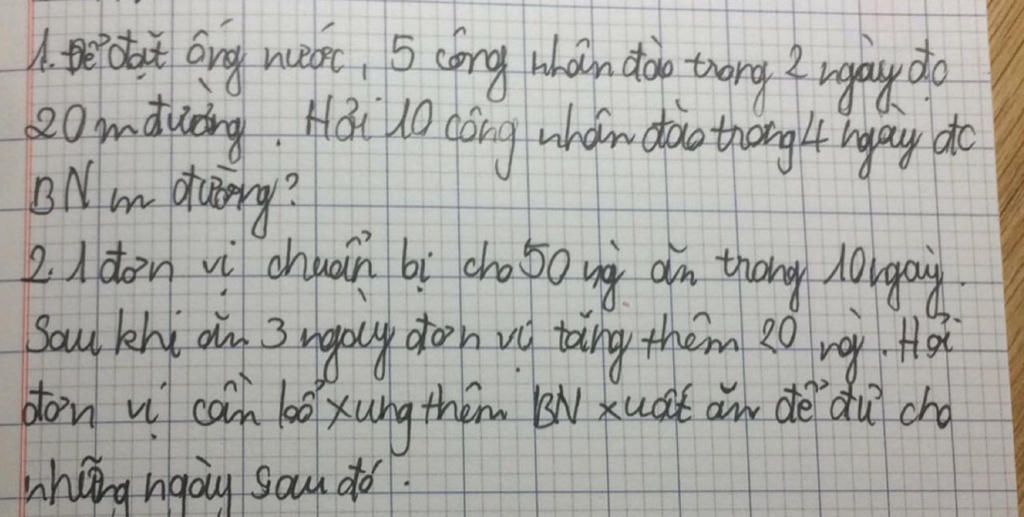 1. Để đặt ống nước, 5 công nhân đào trong 2 ngày đc
20 m đường. Hỏi 10 công nhân đào trong 4 ngày đc
BN m đường?
2. 1 đơn vị chuẩn bị cho 50 ng ăn trong 10 ngày.
Sau khi ăn 3 ngày đơn vị tăng thêm 20 ng. Hỏi
đơn vị cần bổ xung thêm BN xuất ăn để đủ cho
những ngày sau đó.